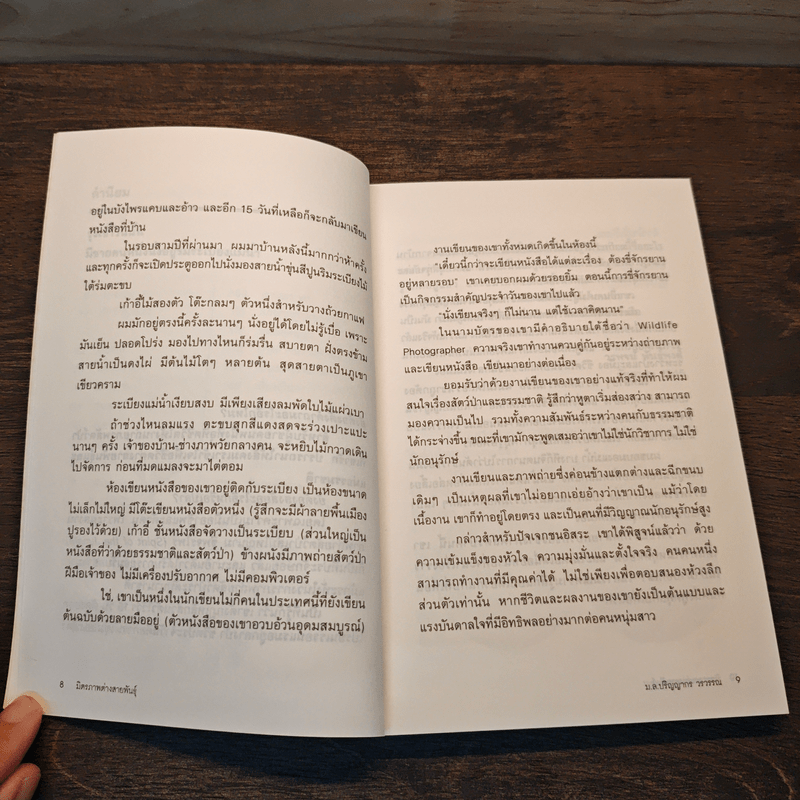 อยู่ในบังไพรแคบและอ้าว และอีก 15 วันที่เหลือก็จะกลับมาเขียน
หนังสือที่บ้าน
ในรอบสามปีที่ผ่านมา ผมมาบ้านหลังนี้มากกว่าห้าครั้ง
และทุกครั้งก็จะเปิดประตูออกไปนั่งมองสายน้ำขุ่นสีปูนริมระเบียงไม้
ใต้ร่มตะขบ
เก้าอี้ไม้สองตัว โต๊ะกลมๆ ตัวหนึ่งสำหรับวางถ้วยกาแฟ
ผมมักอยู่ตรงนี้ครั้งละนานๆ นั่งอยู่ได้โดยไม่รู้เบื่อ เพราะ
มันเย็น ปลอดโปร่ง มองไปทางไหนก็ร่มรื่น สบายตา ฝั่งตรงข้าม
สายน้ำเป็นดงไผ่ มีต้นไม้โตๆ หลายต้น สุดสายตาเป็นภูเขา
เขียวคราม
ระเบียงแม่น้ำเงียบสงบ มีเพียงเสียงลมพัดใบไม้แผ่วเบา
ถ้าช่วงไหนลมแรง ตะขบสุกสีแดงสดจะร่วงเปาะแปะ
นานๆ ครั้ง เจ้าของบ้าน-ช่างภาพวัยกลางคน จะหยิบไม้กวาดเดิน
ไปจัดการ ก่อนที่มดแมลงจะมาไต่ตอม
ห้องเขียนหนังสือของเขาอยู่ติดกับระเบียง เป็นห้องขนาด
ไม่เล็กไม่ใหญ่ มีโต๊ะเขียนหนังสือตัวหนึ่ง (รู้สึกจะมีผ้าลายพื้นเมือง
ปูรองไว้ด้วย) เก้าอี้ ชั้นหนังสือจัดวางเป็นระเบียบ (ส่วนใหญ่เป็น
หนังสือที่ว่าด้วยธรรมชาติและสัตว์ป่า) ข้างผนังมีภาพถ่ายสัตว์ป่า
ฝีมือเจ้าของ ไม่มีเครื่องปรับอากาศ ไม่มีคอมพิวเตอร์
ใช่, เขาเป็นหนึ่งในนักเขียนไม่กี่คนในประเทศนี้ที่ยังเขียน
ต้นฉบับด้วยลายมืออยู่ (ตัวหนังสือของเขาอวบอ้วนอุดมสมบูรณ์)
8 มิตรภาพต่างสายพันธุ์
งานเขียนของเขาทั้งหมดเกิดขึ้นในห้องนี้
"เดี๋ยวนี้กว่าจะเขียนหนังสือได้แต่ละเรื่อง ต้องขี่จักรยาน
อยู่หลายรอบ" เขาเคยบอกผมด้วยรอยยิ้ม ตอนนี้การขี่จักรยาน
เป็นกิจกรรมสำคัญประจำวันของเขาไปแล้ว
"นั่งเขียนจริงๆ ก็ไม่นาน แต่ใช้เวลาคิดนาน"
ในนามบัตรของเขามีคำอธิบายใต้ชื่อว่า Wildlife
Photographer ความจริงเขาทำงานควบคู่กันอยู่ระหว่างถ่ายภาพ
และเขียนหนังสือ เขียนมาอย่างต่อเนื่อง
ยอมรับว่าด้วยงานเขียนของเขาอย่างแท้จริงที่ทำให้ผม
สนใจเรื่องสัตว์ป่าและธรรมชาติ รู้สึกว่าหูตาเริ่มส่องสว่าง สามารถ
มองความเป็นไป รวมทั้งความสัมพันธ์ระหว่างคนกับธรรมชาติ
ได้กระจ่างขึ้น ขณะที่เขามักจะพูดเสมอว่าเขาไม่ใช่นักวิชาการ ไม่ใช่
นักอนุรักษ์
งานเขียนและภาพถ่ายซึ่งค่อนข้างแตกต่างและฉีกขนบ
เดิมๆ เป็นเหตุผลที่เขาไม่อยากเอ่ยอ้างว่าเขาเป็น แม้ว่าโดย
เนื้องาน เขาก็ทำอยู่โดยตรง และเป็นคนที่มีวิญญาณนักอนุรักษ์สูง
กล่าวสำหรับปัจเจกชนอิสระ เขาได้พิสูจน์แล้วว่า ด้วย
ความเข้มแข็งของหัวใจ ความมุ่งมั่นและตั้งใจจริง คนคนหนึ่ง
สามารถทำงานที่มีคุณค่าได้ ไม่ใช่เพียงเพื่อตอบสนองห้วงลึก
ส่วนตัวเท่านั้น หากชีวิตและผลงานของเขายังเป็นต้นแบบและ
แรงบันดาลใจที่มีอิทธิพลอย่างมากต่อคนหนุ่มสาว
ม.ล.ปริญญากร วรวรรณ 9